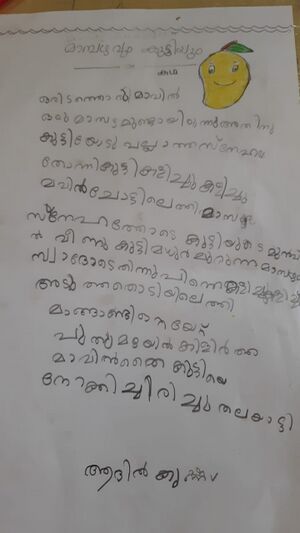 മാമ്പഴവും കുട്ടിയും
കഥ
ഒരിടത്തൊരു മാവിൽ
ഒരു മാമ്പഴമുണ്ടായിരുന്നു അതിനു
കുട്ടിയോടു വല്ലാത്ത സ്നേഹം
തോന്നി കുട്ടികളിച്ചു കളിച്ചു
മാവിൻചോട്ടിലെത്തി മാമ്പഴം
സ്നേഹത്തോടെ കുട്ടിയുടെ മുൻപി
ൽ വീണു കുട്ടി മധുരമൂറുന്ന മാമ്പഴം
സ്വാദോടെ തിന്നു പിന്നെ കളിച്ചുകളിച്ചു
അടുത്തതൊടിയിലെത്തി
മാങ്ങാണ്ടിനെയേറ്
പുതുമഴയിൽ കിളിർത്ത
മാവിൻതൈ കുട്ടിയെ
നോക്കി ചിരിച്ചു തലയാട്ടി
ആദിൽ കൃഷ്ണ